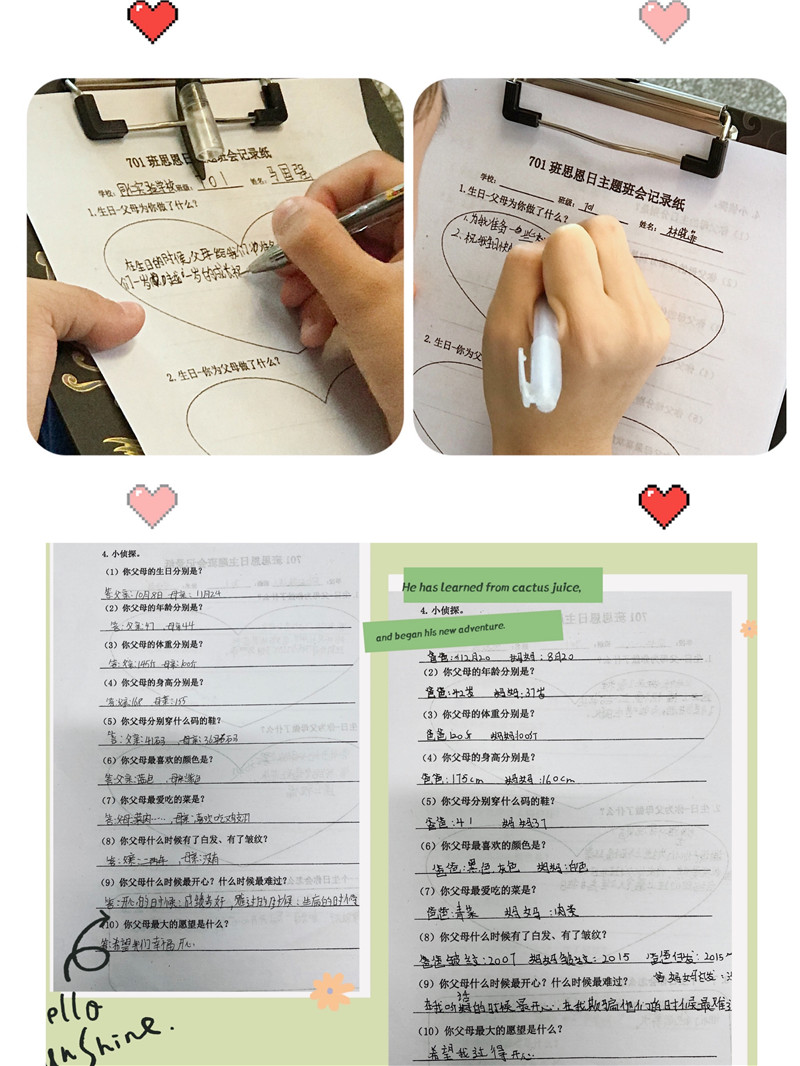 701 班思恩日主题班会记录纸
学校: 班级: 701 姓名:
1.生日-父母为你做了什么?
在生日的时候,父母
2. 生日-你为父母做了什么?
701 班思恩日主题班会记录纸
学校: 班级: 701 姓名:
1.生日-父母为你做了什么?
1.为我准备一
2.祝我
2. 生日-你为父母
4. 小侦探。
(1) 你父母的生日分别是?
答:父亲:10月8日 母亲:11月24
(2) 你父母的年龄分别是?
答:父亲:47 母亲44
(3) 你父母的体重分别是?
答:父亲:145斤 母亲:100斤
(4) 你父母的身高分别是?
答:父亲:168 母亲:155
(5) 你父母分别穿什么码的鞋?
答:父亲:41码 母亲:36码
(6) 你父母最喜欢的颜色是?
答:父亲:蓝色
(7) 你父母最爱吃的菜是?
(8) 你父母什么时候有了白发、有了皱纹?
母亲:没有
(9) 你父母什么时候最开心?什么时候最难过?
答:开心的时候:成绩考好,难过的时候:生病的时候
(10) 你父母最大的愿望是什么?
答:希望我们幸福开心
ello
unshine.
He has learned from cactus juice,
and began his new adventure.
4. 小侦探。
爸爸:12月20 妈妈:8月20
(2) 你父母的年龄分别是?
爸爸:42岁 妈妈:37岁
(3) 你父母的体重分别是?
爸爸120斤 妈妈100斤
(4) 你父母的身高分别是?
爸爸:175cm 妈妈:160cm
(5) 你父母分别穿什么码的鞋?
爸爸:41 妈妈37
(6) 你父母最喜欢的颜色是?
爸爸:黑色,灰色 妈妈:白色
(7) 你父母最爱吃的菜是?
爸爸:青菜 妈妈:肉类
(8) 你父母什么时候有了白发、有了皱纹?
爸爸皱纹:2007 妈妈皱纹:2015 爸爸白发:2015
(9) 你父母什么时候最开心?什么时候最难过?
在我听话的时候最开心,在我欺骗他们的时候最难过
(10) 你父母最大的愿望是什么?
希望我过得开心